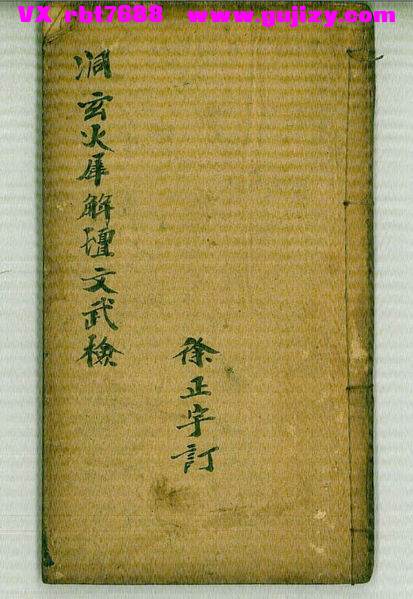 VX rbt7888 www.gujizy.com
洞玄火犀解壇文武檢
徐正字訂